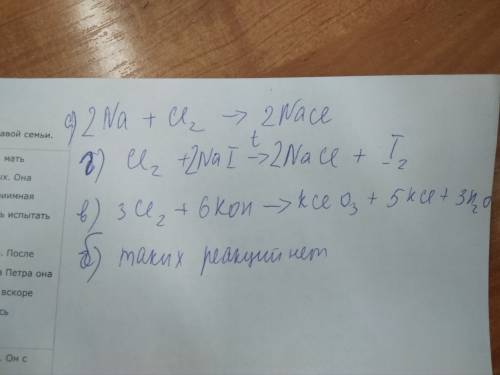 авой семьи.
мать
ых. Она
риимная
ь испытать
. После
а Петра она
вскоре
сь
. Он с
а) 2Na + Cl₂ → 2NaCl
г) Cl₂ + 2NaI →ᵗ 2NaCl + I₂
в) 3Cl₂ + 6KOH → KClO₃ + 5KCl + 3H₂O
б) таких реакций нет